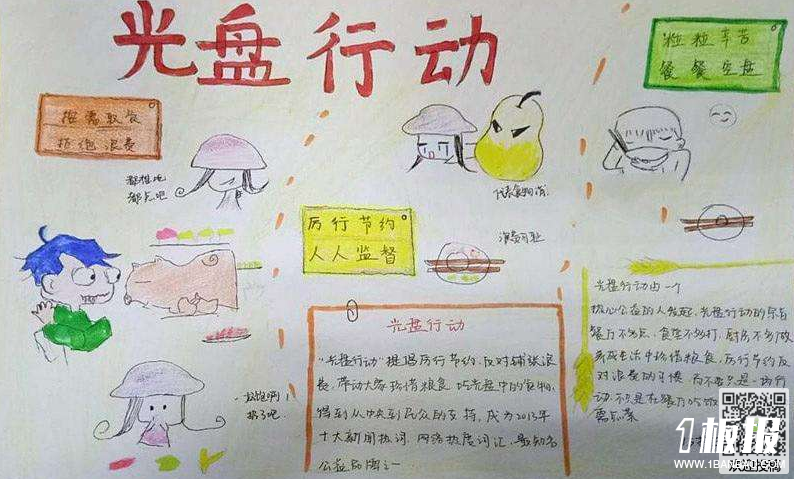 光盘行动
粒粒辛苦
餐餐空盘
按需取食
拒绝浪费
都想吃
都点吧
厉行节约
人人监督
浪费可耻
扔了吧
光盘行动
"光盘行动"提倡厉行节约,反对铺张浪
费,带动大家珍惜粮食,吃光盘中的食物,
得到从中央到民众的支持,成为2013年
十大新闻热词、网络热度词汇,最知名
公益品牌之一
光盘行动由一个
热心公益的人发起,光盘行动的宗旨
餐厅不多点、食堂不多打、厨房不多做
养成生活中珍惜粮食、厉行节约反
对浪费的习惯 而不要只是一场行
动,不只是在餐厅吃饭
需点菜
1板报
WWW.1BANBAO.COM
欢迎投稿